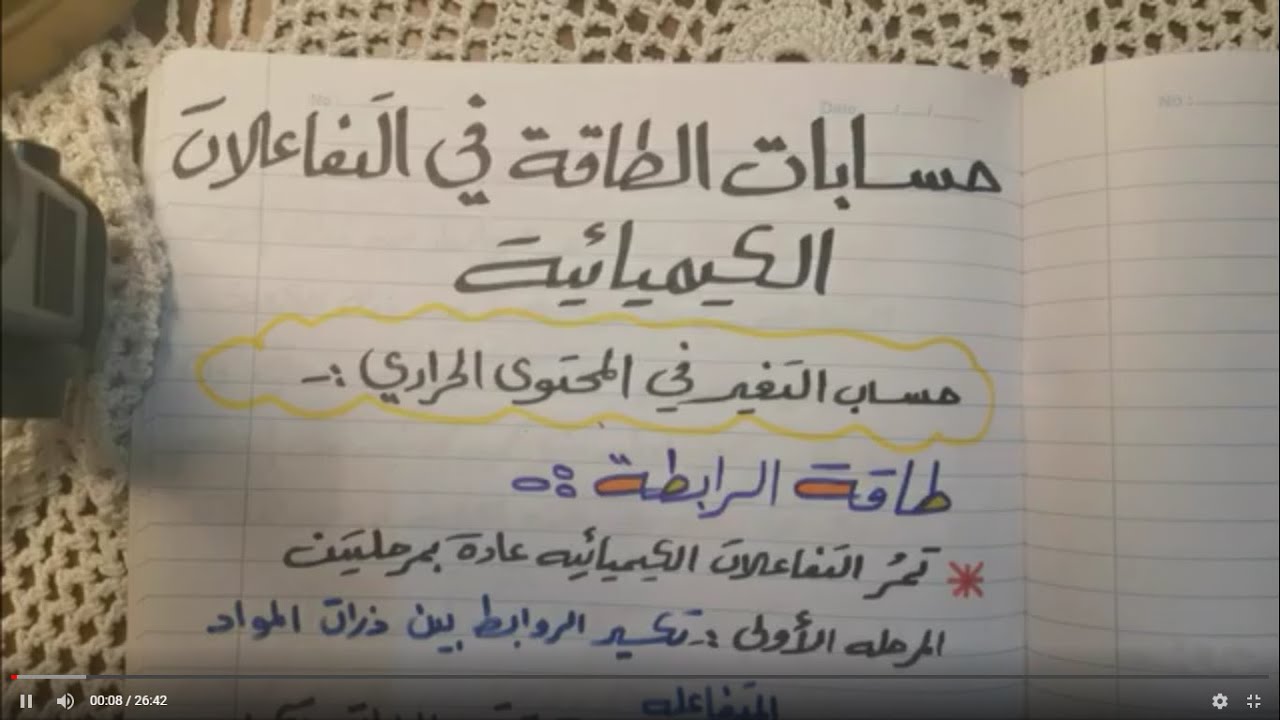 No :
Date / /
No :
حسابات الطاقة في التفاعلات
الكيميائية
حساب التغير في المحتوى الحراري :-
طاقة الرابطة :-
* تمرُ التفاعلات الكيميائيه عادة بمرحلتين
المرحله الأولى :- تكسير الروابط بين ذرات المواد
المتفاعله
00:08 / 26:42